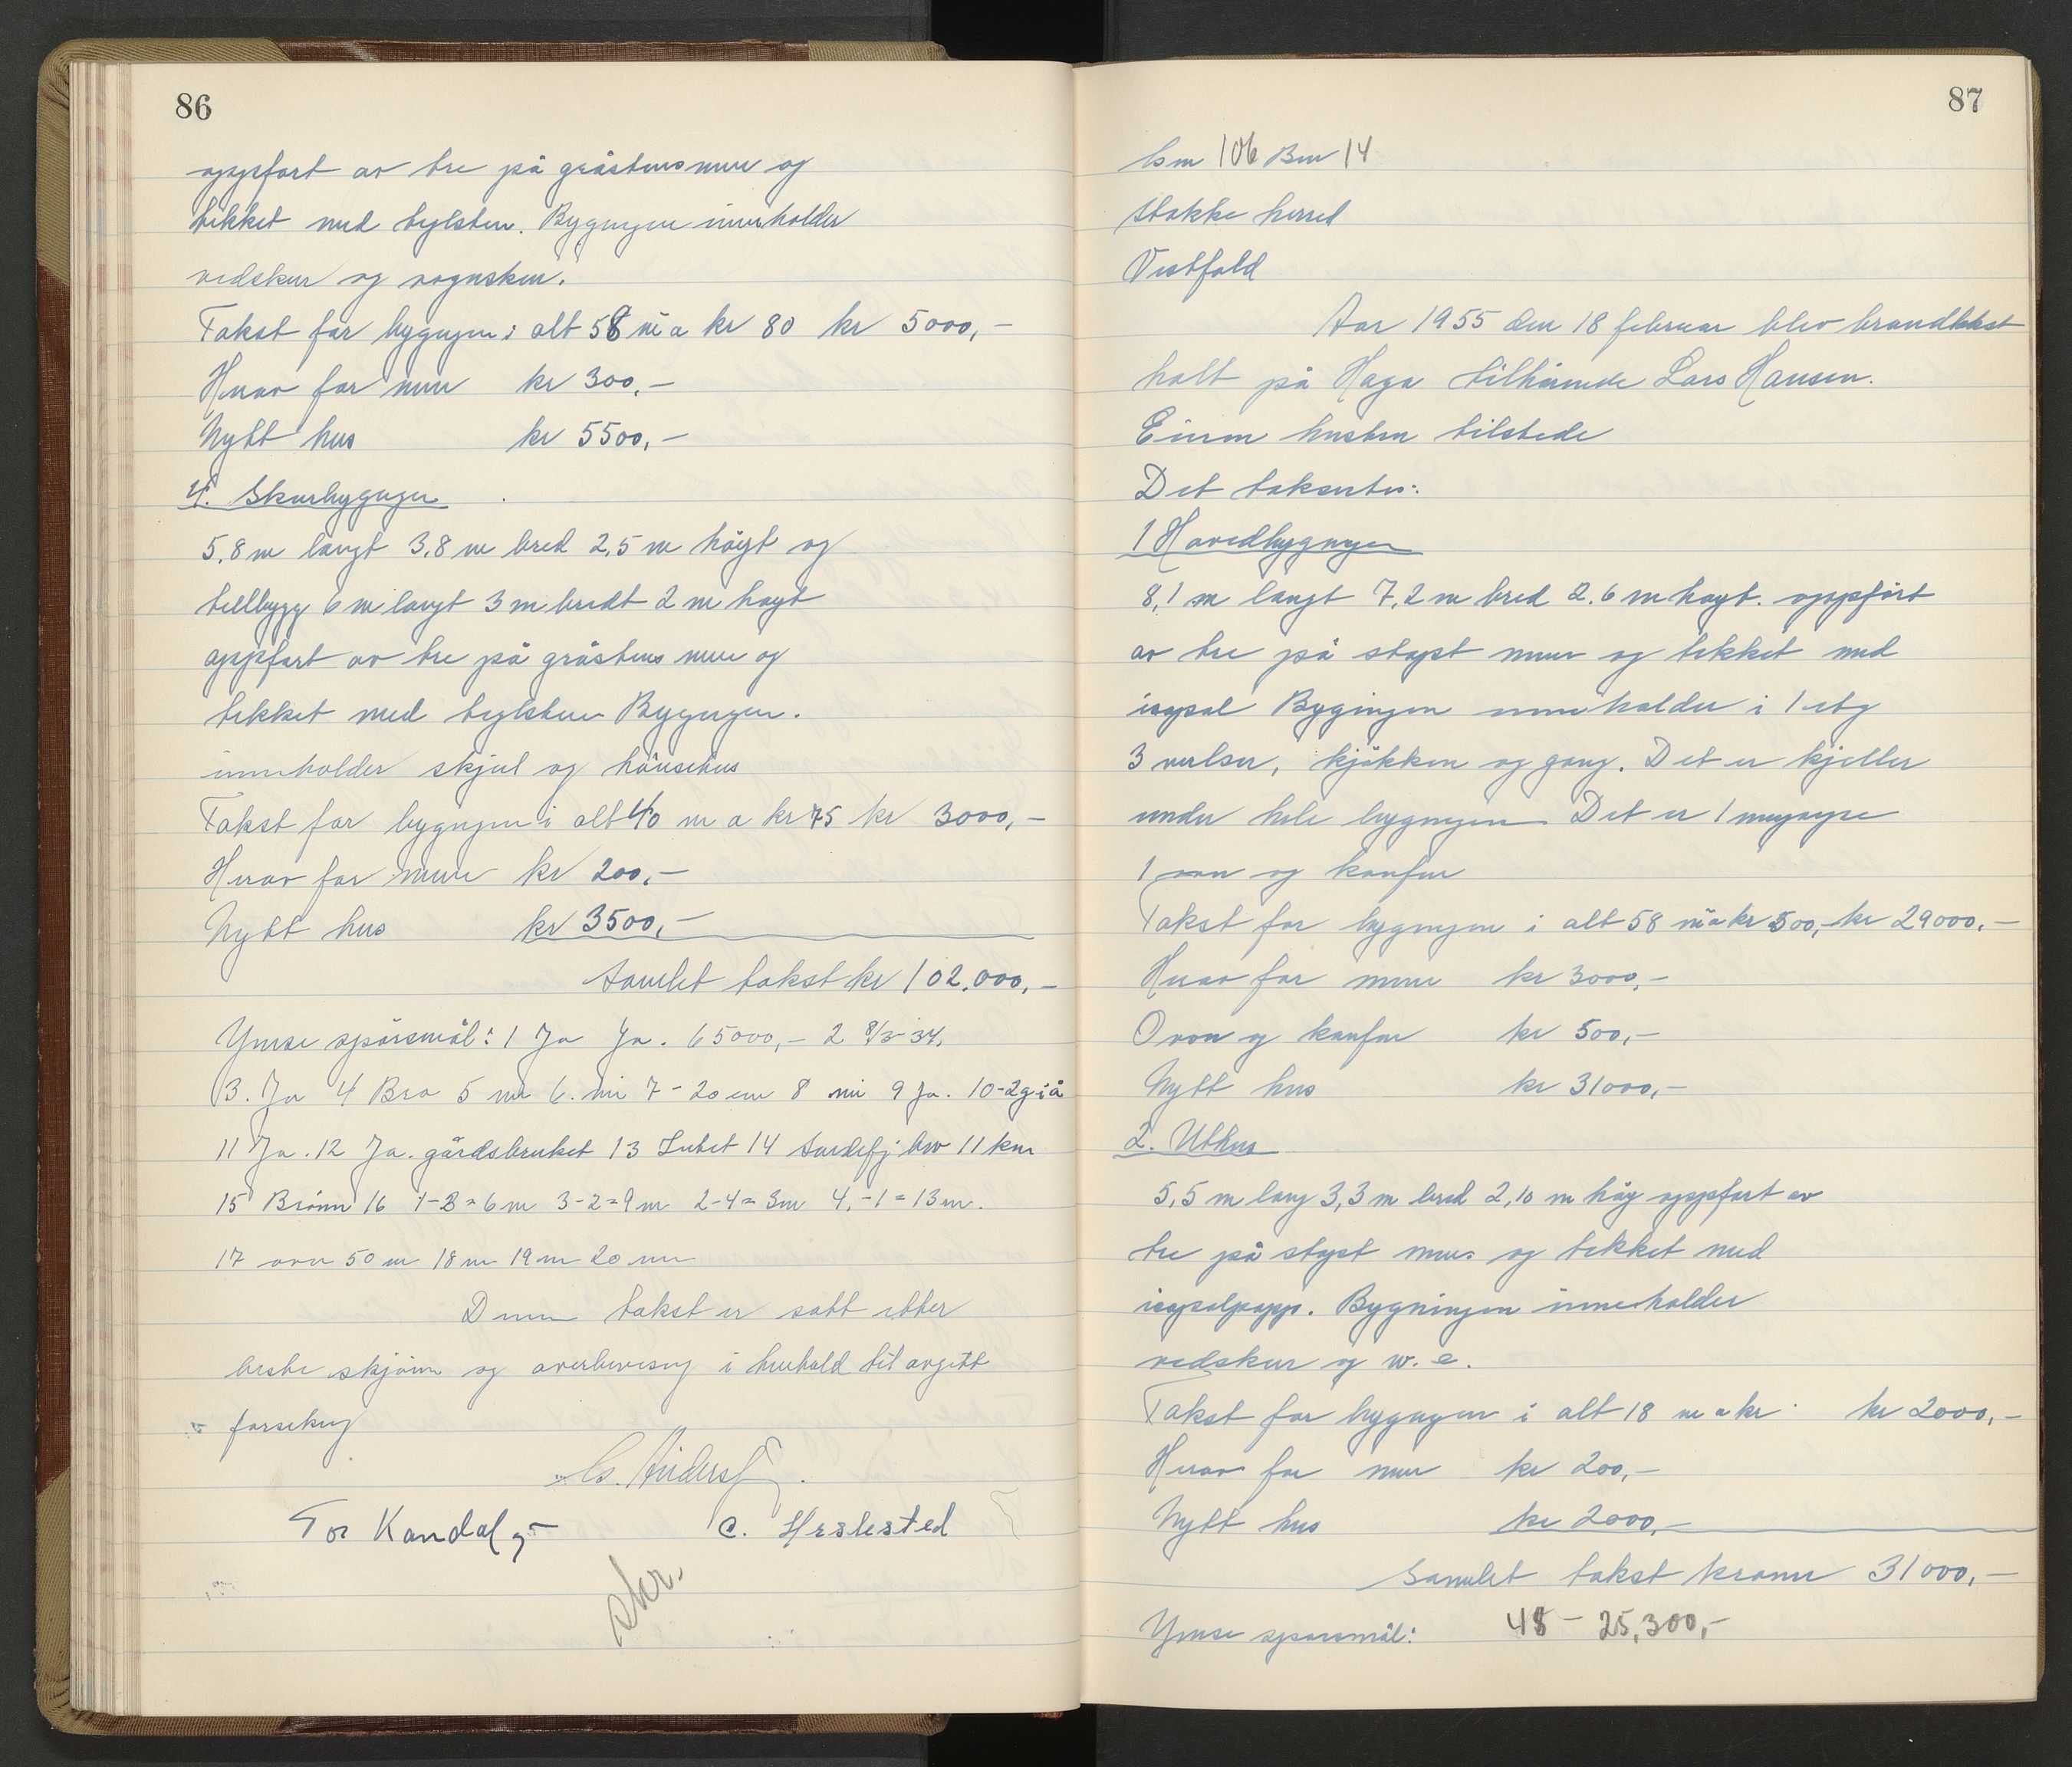 86
oppført av tre på gråstensmur og
tekket med teglsten. Bygningen innholder
vedskur og vognskur.
Takst for bygningen i alt 58 m² a kr 80 kr 5000,-
Herav for mur kr 300,-
Nytt hus kr 5500,-
4. Skurbygingen
5,8 m langt 3,8 m bred 2,5 m høyt og
tillbygg 6 m langt 3 m bredt 2 m høyt
oppført av tre på gråstens mur og
tekket med teglsten Bygingen.
inneholder skjul og hönsehus
Takst for bygningen i alt 40 m a kr 75 kr 3000,-
Herav for mur kr 200,-
Nytt hus kr 3500,-
Samlet takst kr 102.000,-
Ymse spörsmål: 1 Ja Ja. 65000,- 2 8/3-34.
3. Ja 4 Bra 5 nei 6. nei 7- 20 cm 8 nei 9 Ja. 10-2g i å
11 Ja. 12 Ja. gårdsbruket 13 Intet 14 Sandefj. bv 11 km
15 Brönn 16 1-3=6m 3-2=9m 2-4=3m 4,-1=13m.
17 over 50 m 18 nei 19 nei 20 nei
Denne takst er satt etter
beste skjönn og overbevisning i henhold til avgitt
forsikring
C. Heslested
Tor Kandal
skr.
87
Gnr 106 Bnr 14
Stokke herred
Vestfold
Aar 1955 den 18 februar blev brandtakst
holt på Haga tilhörende Lars Hansen.
Eieren husten tilstede
Det taksertes:
1 Hovedbygningen
8,1 m langt 7,2 m bred 2.6 m høyt. oppfört
av tre på støpt mur og tekket med
isopal Bygingen inneholder i 1 etg
3 verlser, kjökken og gang. Det er kjeller
under hele bygningen Det er 1 murpipe
1 ovn og komfur
Takst for bygningen i alt 58 m² a kr 500,- kr 29000.-
Herav for mur kr 3000,-
Ovon og komfur kr 500,-
Nytt hus kr 31000,-
2. Uthus
5,5 m lang 3,3 m bred 2,10 m höy oppført av
tre på støpt mur og tekket med
isopalpapp. Bygningen inneholder
vedskur og w. c.
Takst for bygningen i alt 18 m a kr kr 2000,-
Herav for mur kr 200,-
Nytt hus kr 2000,-
Samlet takst kroner 31000,-
Ymse spørsmål: 48 - 25,300,-